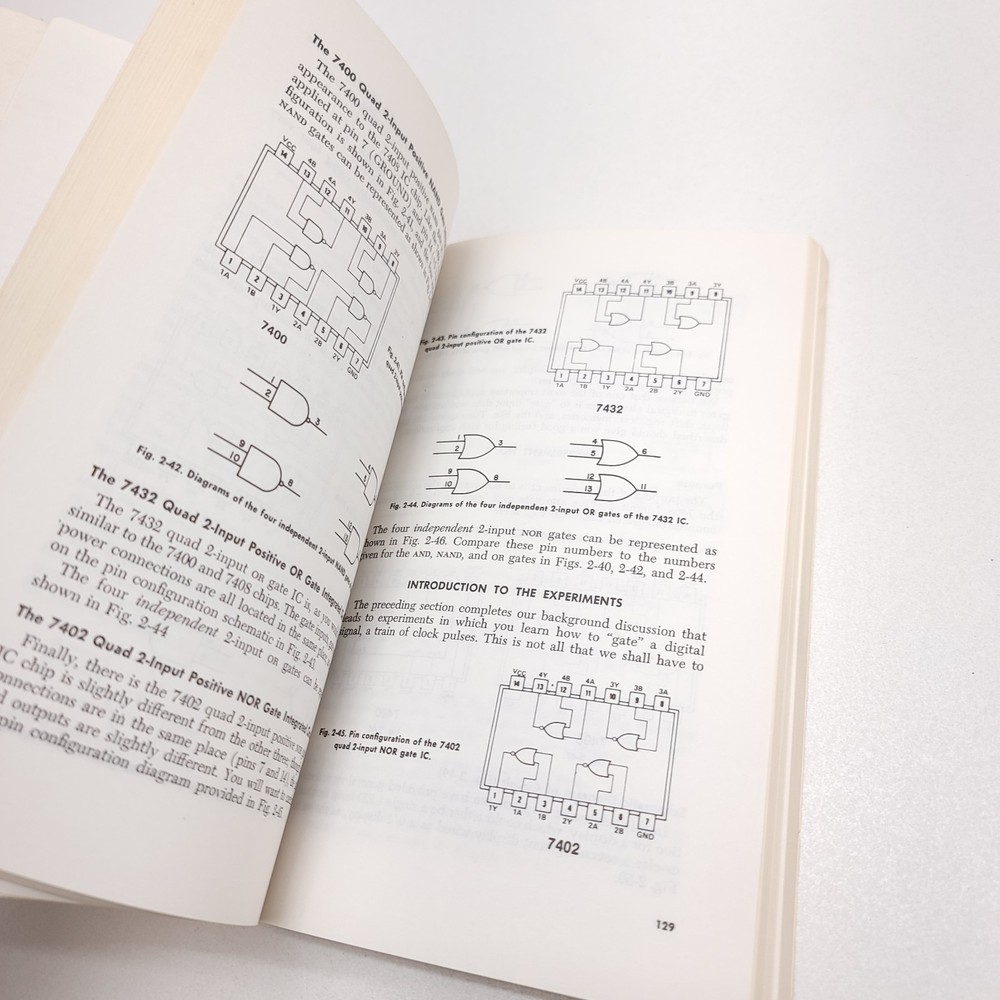 The 7400 Quad 2-Input Positive NAND
The 7400 quad 2-input positive
appearance to the 7408 IC chip.
applied at pin 7 (GROUND) and pin 14
figuration is shown in Fig. 2-41, and
NAND gates can be represented as shown
VCC 4B 4A 4Y 3B 3A 3Y
14 13 12 11 10 9 8
1 2 3 4 5 6 7
1A 1B 1Y 2A 2B 2Y GND
7400
1 2 3
9 10 8
Fig. 2-42. Diagrams of the four independent 2-input NAND
The 7432 Quad 2-Input Positive OR Gate Integrated
The 7432 quad 2-input OR gate IC is, as you
similar to the 7400 and 7408 chips. The gate inputs,
power connections are all located in the same place
on the pin configuration schematic in Fig. 2-43.
The four independent 2-input OR gates can be
shown in Fig. 2-44
The 7402 Quad 2-Input Positive NOR Gate Integrated
Finally, there is the 7402 quad 2-input positive
IC chip is slightly different from the other three
connections are in the same place (pins 7 and 14),
outputs are slightly different. You will want to
pin configuration diagram provided in Fig. 2-45.
Fig. 2-43. Pin configuration of the 7432
quad 2-input positive OR gate IC.
VCC 4B 4A 4Y 3B 3A 3Y
14 13 12 11 10 9 8
1 2 3 4 5 6 7
1A 1B 1Y 2A 2B 2Y GND
7432
1 2 3 4 5 6
9 10 8 12 13 11
Fig. 2-44. Diagrams of the four independent 2-input OR gates of the 7432 IC.
The four independent 2-input NOR gates can be represented as
shown in Fig. 2-46. Compare these pin numbers to the numbers
given for the AND, NAND, and OR gates in Figs. 2-40, 2-42, and 2-44.
INTRODUCTION TO THE EXPERIMENTS
The preceding section completes our background discussion that
leads to experiments in which you learn how to “gate” a digital
signal, a train of clock pulses. This is not all that we shall have to
VCC 4Y 4B 4A 3Y 3B 3A
14 13 12 11 10 9 8
Fig. 2-45. Pin configuration of the 7402
quad 2-input NOR gate IC.
1 2 3 4 5 6 7
1Y 1A 1B 2Y 2A 2B GND
7402
129